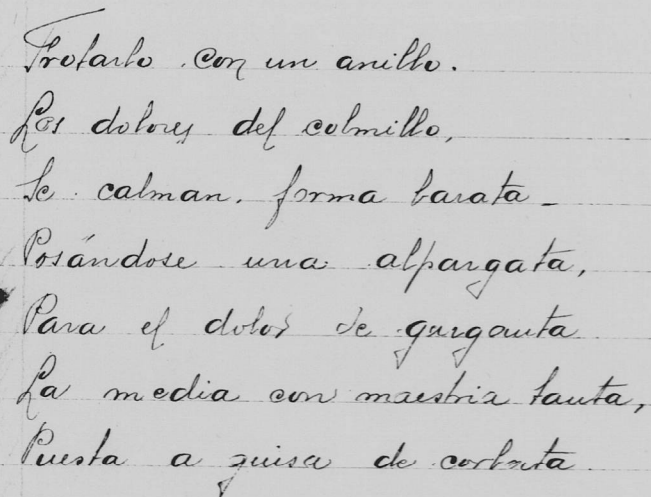 Frotarlo con un anillo.
Los dolores del colmillo,
Se calman. forma barata_
Posándose una alpargata,
Para el dolor de garganta
La media con maestria tanta,
Puesta a guisa de corbata